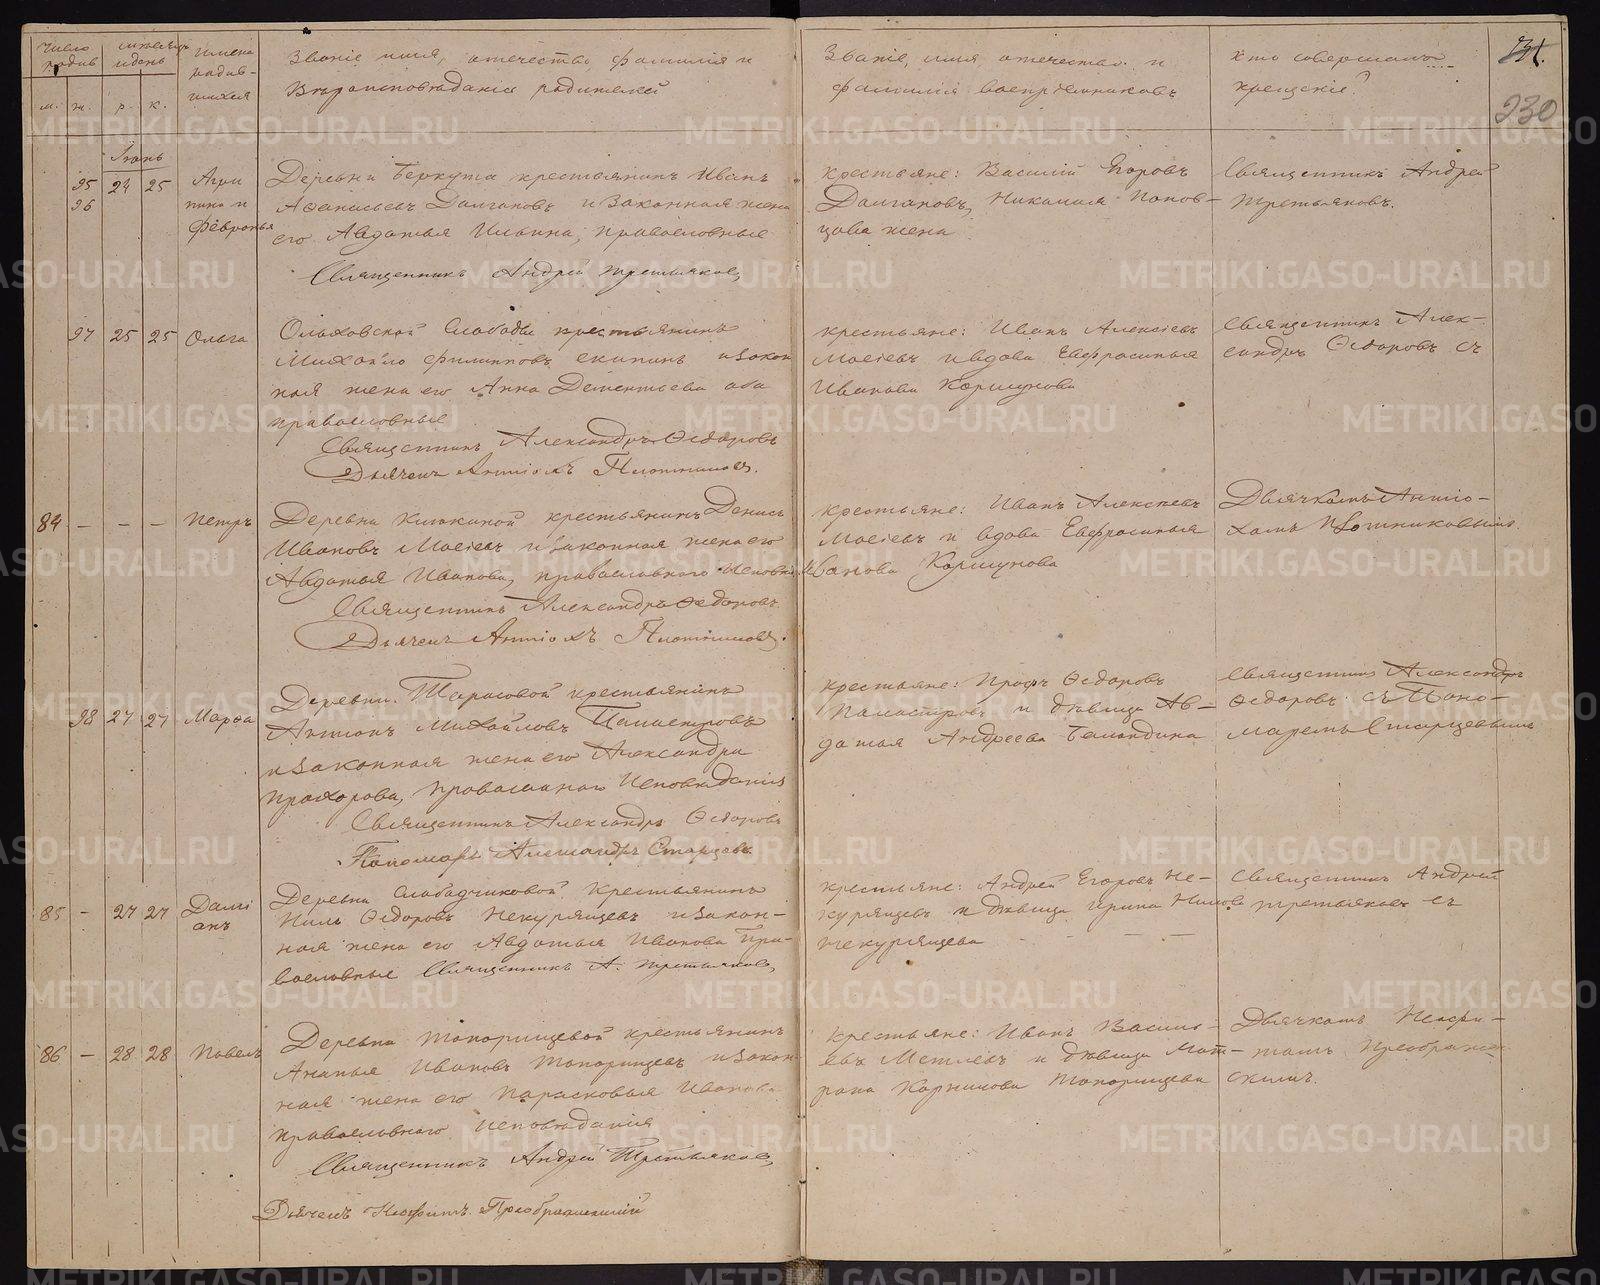 Число родив
мѣсяцъ и день
Имена родив-
шихся
Званіе имя, отечество, фамилія и
Вѣроисповѣданіе родителей
Званіе, имя отечество и
фамилія воспріемниковъ
Кто совершалъ
крещеніе?
м. ж. р. к.
230
Іюнь
95
96
24 25
Агри
пина и
Февронья
Деревни Беркута крестьянинъ Иванъ
Афанасьевъ Долгановъ и законная жена
его Авдотья Ильина, православные
Священникъ Андрей Третьяковъ
крестьяне: Василій Егоровъ
Долгановъ, Николая Попов-
цова жена
Священникъ Андрей
Третьяковъ.
97 25 25 Ольга
Ольховской Слободы крестьянинъ
Михайло Филипповъ и закон
ная жена его Анна Дементьева оба
православные
Священникъ Александръ Ѳедоровъ
Дьячекъ Антіохъ Плотниковъ.
крестьяне: Иванъ Алексѣевъ
Мосѣевъ и вдова Евфросинья
Иванова Коршунова
Священникъ Алек-
сандръ Ѳедоровъ съ
84 – – – Петръ
Деревни крестьянинъ Денисъ
Ивановъ Мосѣевъ и законная жена его
Авдотья Иванова, православнаго исповѣд
Священникъ Александръ Ѳедоровъ
Дьячекъ Антіохъ Плотниковъ.
крестьяне: Иванъ Алексѣевъ
Мосѣевъ и вдова Евфросинья
Иванова Коршунова
Дьячкомъ Антіо-
хомъ Плотниковымъ.
98 27 27 Марѳа
Деревни Тарасовой крестьянинъ
Антонъ Михайловъ Паластровъ
и законная жена его Александра
Прохорова, православнаго исповѣданія
Священникъ Александръ Ѳедоровъ
Пономарь Александръ Старцевъ
крестьяне: Ѳедоровъ
Паластровъ и дѣвица Ав-
дотья Андреева Баландина
Священникъ Александръ
Ѳедоровъ съ Поно-
маремъ Старцевымъ
85 – 27 27
Далмі
анъ
Деревни Слободчиковой крестьянинъ
Нилъ Ѳедоровъ Некурящевъ и закон-
ная жена его Авдотья Иванова пра-
вославные Священникъ А. Третьяковъ
крестьяне: Андрей Егоровъ Не-
курящевъ и дѣвица Ирина Нилова
Некурящева
Священникъ Андрей
Третьяковъ съ
86 – 28 28 Павелъ
Деревни Топорищевой крестьянинъ
Ананья Ивановъ Топорищевъ и закон
ная жена его Парасковья Иванова
православнаго исповѣданія
Священникъ Андрей Третьяковъ
Дьячекъ Неофитъ Преображенскій
крестьяне: Иванъ Василь-
евъ Метлевъ и дѣвица Мат-
рона Корнилова Топорищева
Дьячкомъ Неофи-
томъ Преображен
скимъ.
METRIKI.GASO-URAL.RU